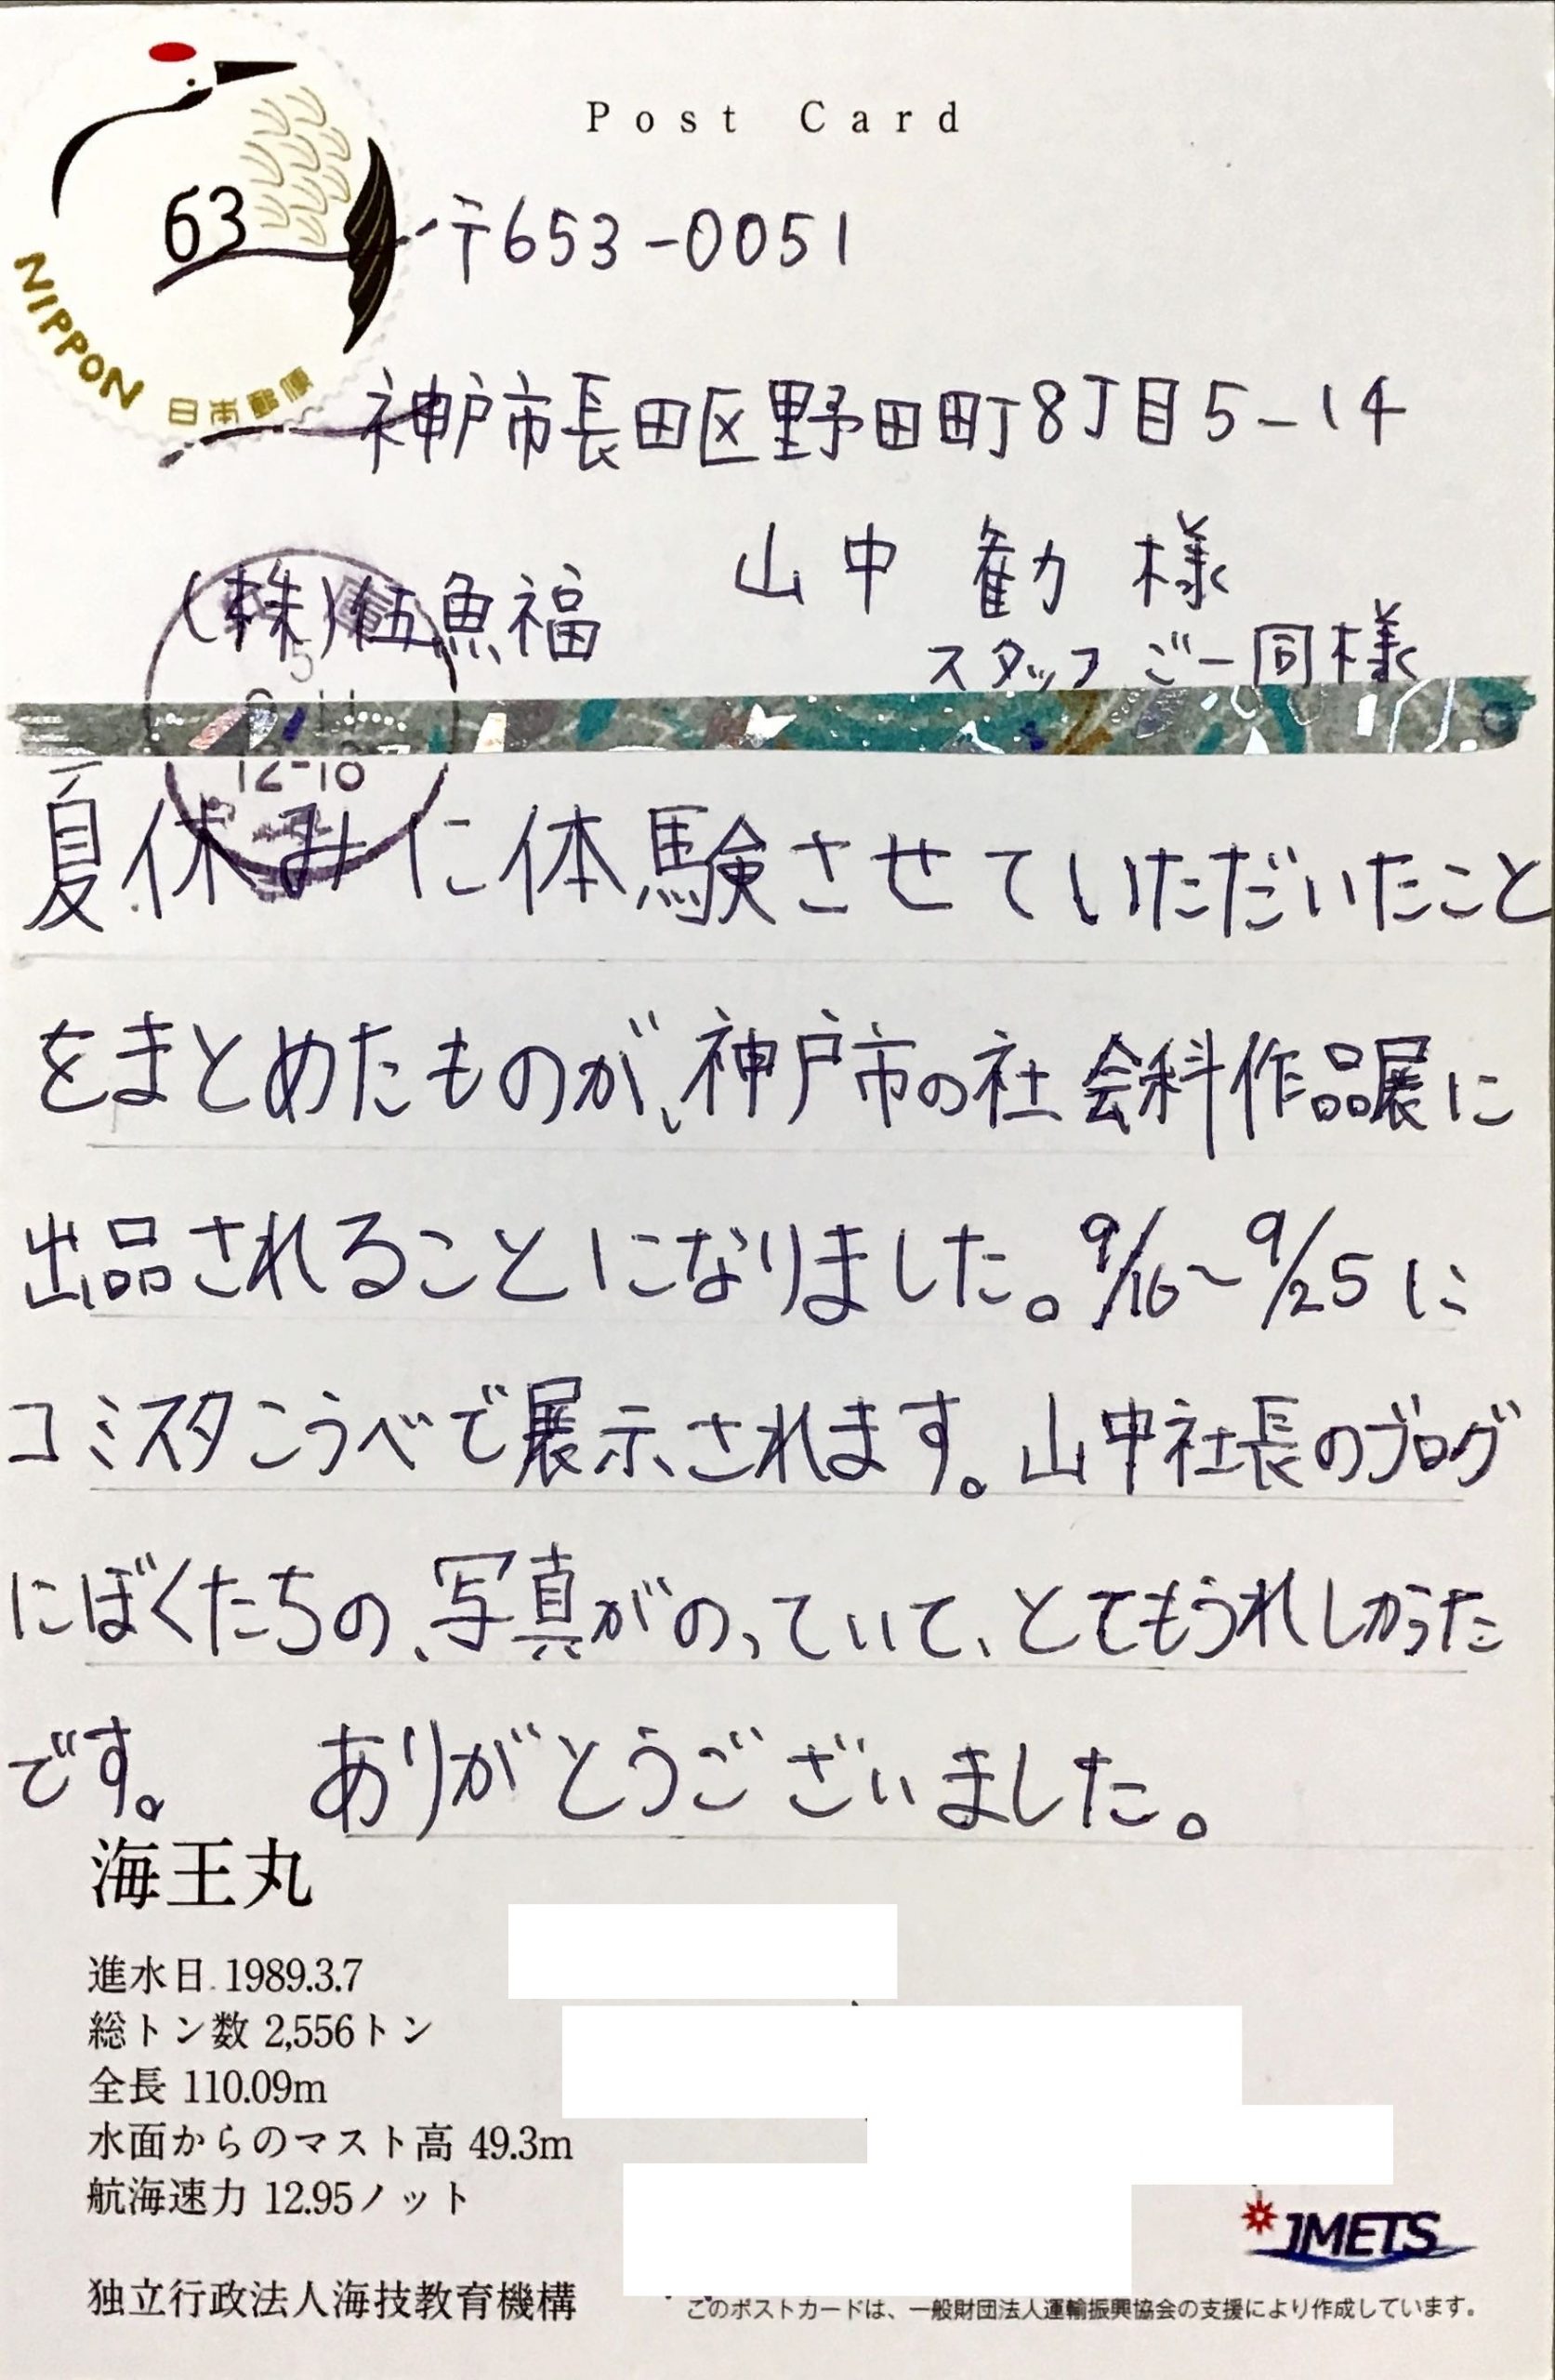 Post Card
63
NIPPON
日本郵便
〒653-0051
神戸市長田区野田町8丁目5-14
山中 勧 様
(株)伍魚福
スタッフご一同様
12-18
夏休みに体験させていただいたこと
をまとめたものが、神戸市の社会科作品展に
出品されることになりました。9/16~9/25に
コミスタこうべで展示されます。山中社長のブログ
にぼくたちの、写真がのっていて、とてもうれしかった
です。 ありがとうございました。
海王丸
進水日 1989.3.7
総トン数 2,556トン
全長 110.09m
水面からのマスト高 49.3m
航海速力 12.95ノット
JMETS
独立行政法人海技教育機構
このポストカードは、一般財団法人運輸振興協会の支援により作成しています。